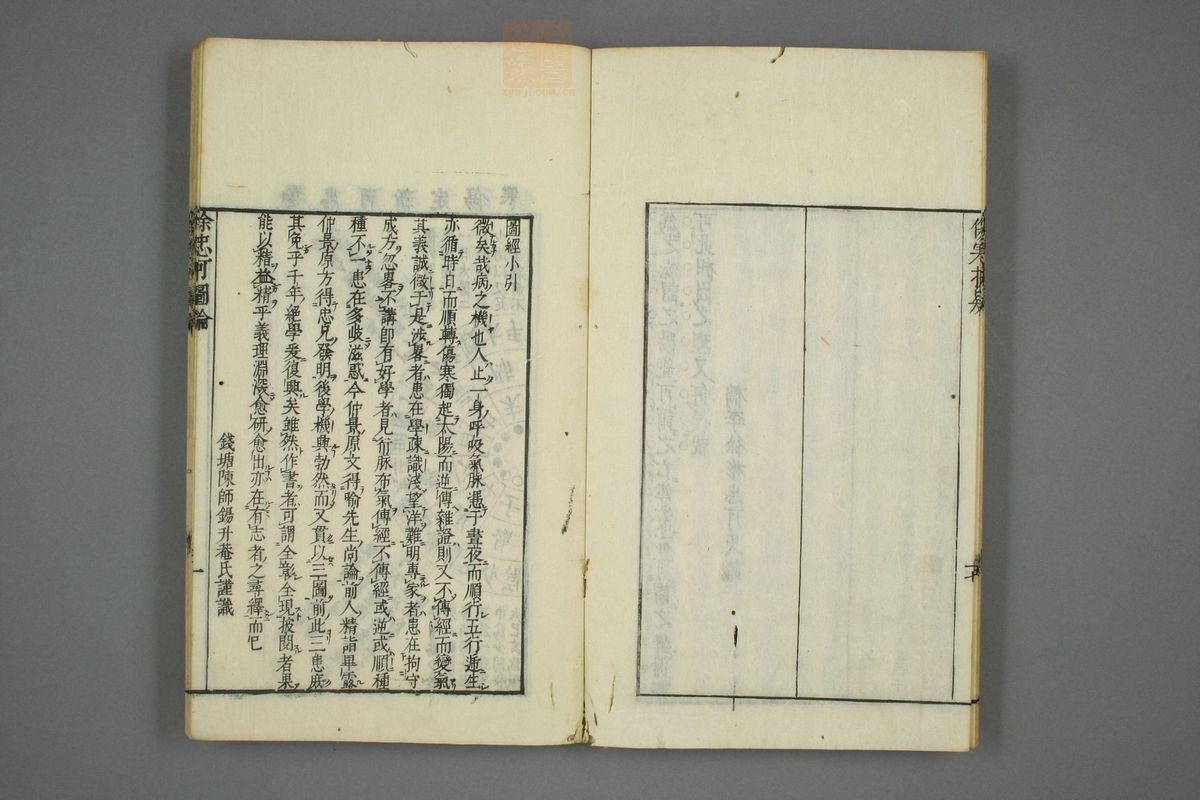 圖經小引
微矣哉病之機也人止一身呼吸氣脉憑于晝夜而順行五行遞生
亦循時日而順轉傷寒獨起太陽而逆傳雜證則又不傳經而變氣
其義誠微于是淺畧者患在學疎識淺望洋難明專家者患在拘守
成方忽畧不講卽有好學者見衍脉布氣傳經不傳經或逆或順種
種不一患在多歧滋惑今仲景原文得喻先生尚論前人精詣畢露
仲景原方得忠兄發明後學機興勃然而又貫以三圖前此三患庶
其免乎千年絕學爰復興矣雖然作書者可謂全彰全現披閱者果
能以精益精乎義理淵深愈研愈出亦在有志者之尋繹而巳
錢塘陳師錫升菴氏謹識
徐忠可圖論